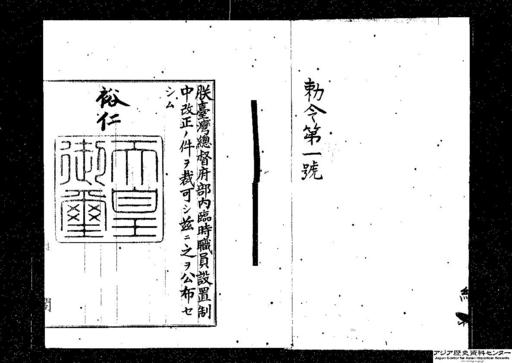 勅令第一號
朕臺灣總督府部内臨時職員設置制
中改正ノ件ヲ裁可シ茲ニ之ヲ公布セ
シム
裕仁
天皇
御璽
アジア歴史資料センター
Japan Center for Asian Historical Records